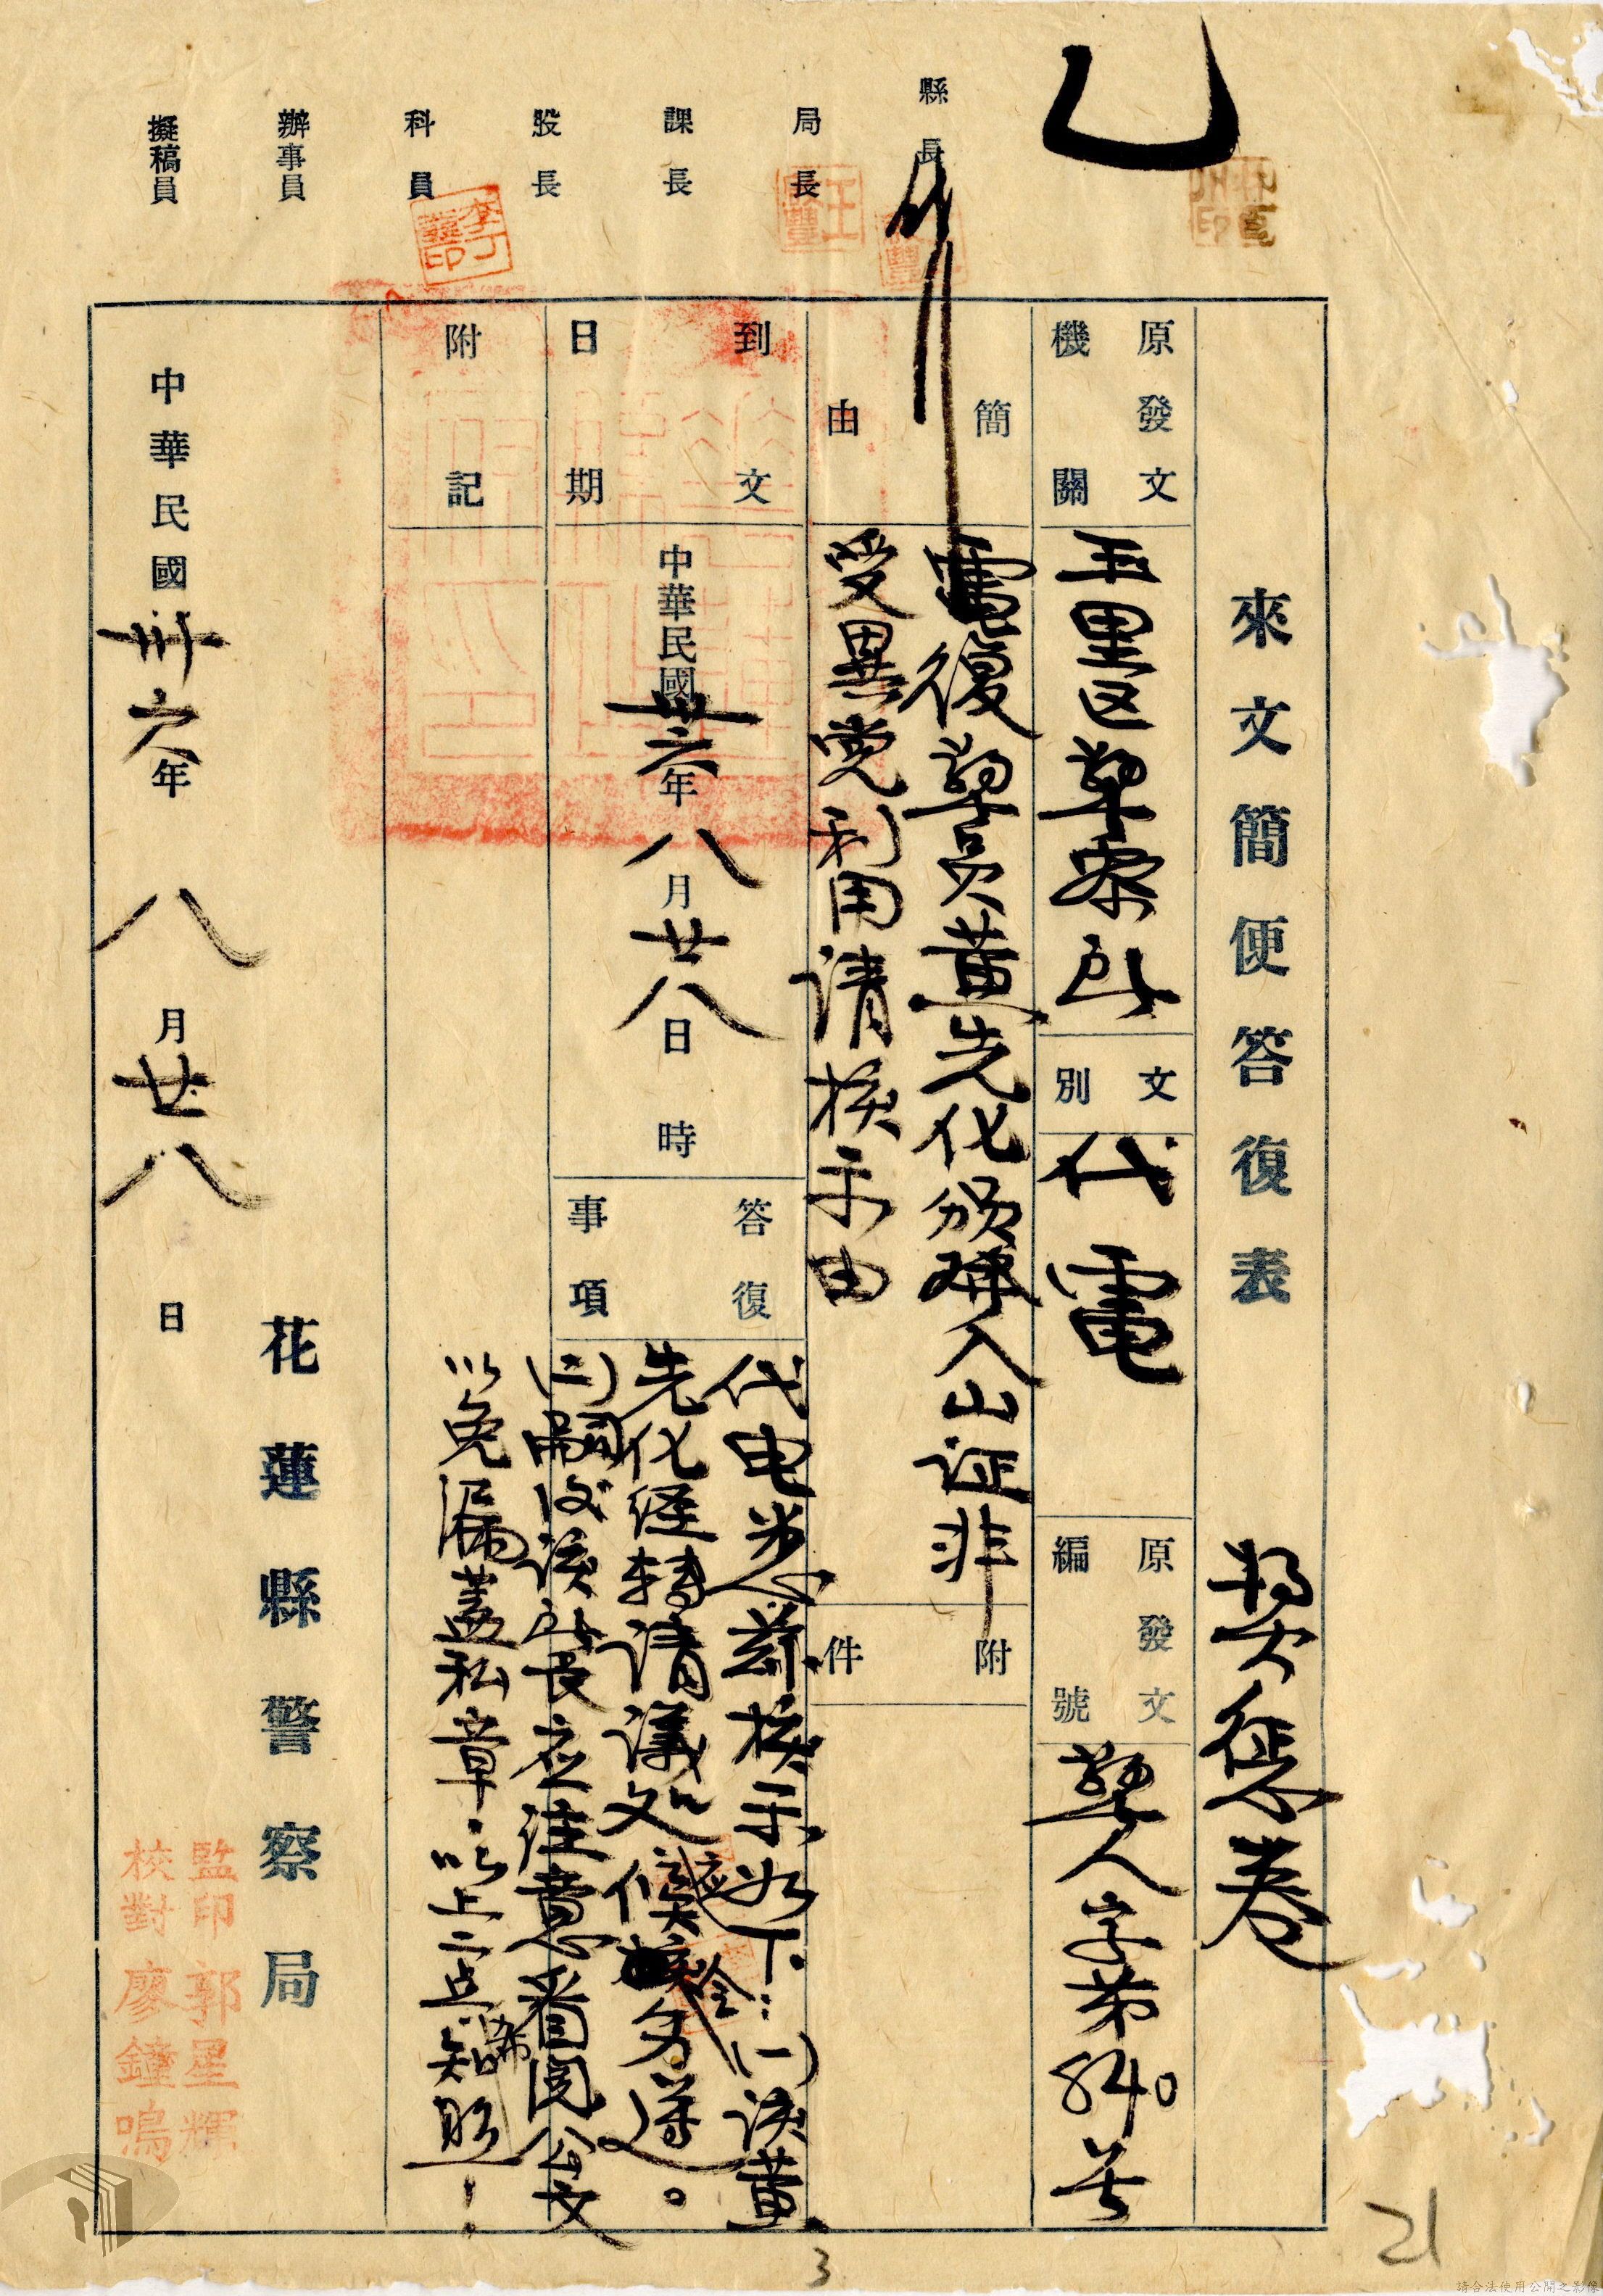 縣長
局長
課長
股長
科員
辦事員
擬稿員
來文簡便答復表
獎懲卷
原發文機關
玉里区警察所
文別
代電
原發文編號
警人字第840号
簡由
電復警员黃先化頒璘入山证非
受異党利用请核示由
附件
到文日期
中華民國卅六年八月廿八日時
答復事項
代电悉茲核示如下:(一)该黃
先化经转请議处候应令另遵。
(二)嗣後该所長应注意看阅公文
以免漏盖私章.以上二点希知照!
附記
花蓮縣警察局
中華民國卅六年八月廿八日
監印郭星輝
校對廖鐘鳴
3
21
請合法使用公開之影像